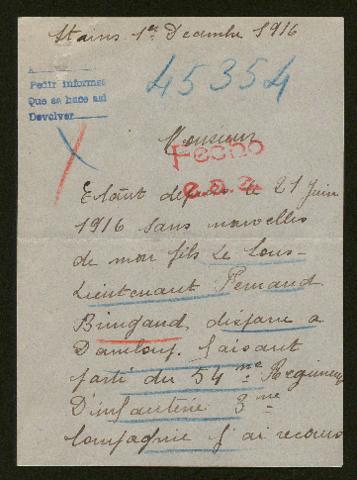 Stains 1er Decembre 1916
45354
Pedir informes
Que se hace asi
Devolver
Monsieur
Fecho
Etant depuis le 21 Juin
1916 sans nouvelles
de mon fils Le Sous-
Lieutenant Fernand
Bringand, disparu a
Damloup, faisant
parti du 54me Regiment
D'infanterie 3me
Compagnie J'ai recours